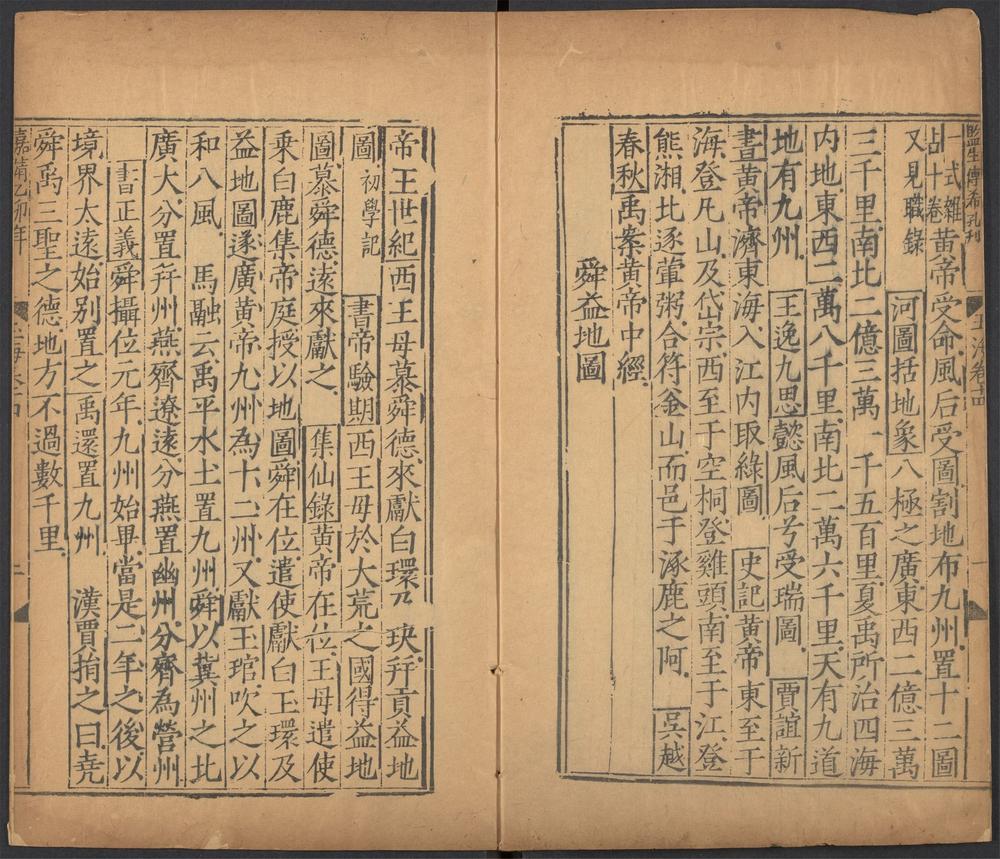 監生傅希孔刊
玉海卷十四
一
占十卷式雜黃帝受命風后受圖割地布九州置十二圖
又見職錄 河圖括地象八極之廣東西二億三萬
三千里南北二億三萬一千五百里夏禹所治四海
内地東西二萬八千里南北二萬六千里天有九道
地有九州 王逸九思懿風后兮受瑞圖 賈誼新
書黃帝濟東海入江内取綠圖 史記黃帝東至于
海登凡山及岱宗西至于空桐登雞頭南至于江登
熊湘北逐葷粥合符釜山而邑于涿鹿之阿 吳越
春秋禹案黃帝中經
舜益地圖
帝王世紀西王母慕舜德來獻白環 玦幷貢益地
圖 初學記 書帝驗期西王母於大荒之國得益地
圖慕舜德遠來獻之 集仙錄黃帝在位王母遣使
乘白鹿集帝庭授以地圖舜在位遣使獻白玉環及
益地圖遂廣黃帝九州為十二州又獻玉琯吹之以
和八風 馬融云禹平水土置九州舜以冀州之北
廣大分置幷州燕齊遼遠分燕置幽州分齊為營州
書正義舜攝位元年九州始畢當是二年之後以
境界太遠始別置之禹還置九州 漢賈捐之曰堯
舜禹三聖之德地方不過數千里
嘉靖乙卯年
玉海卷十四